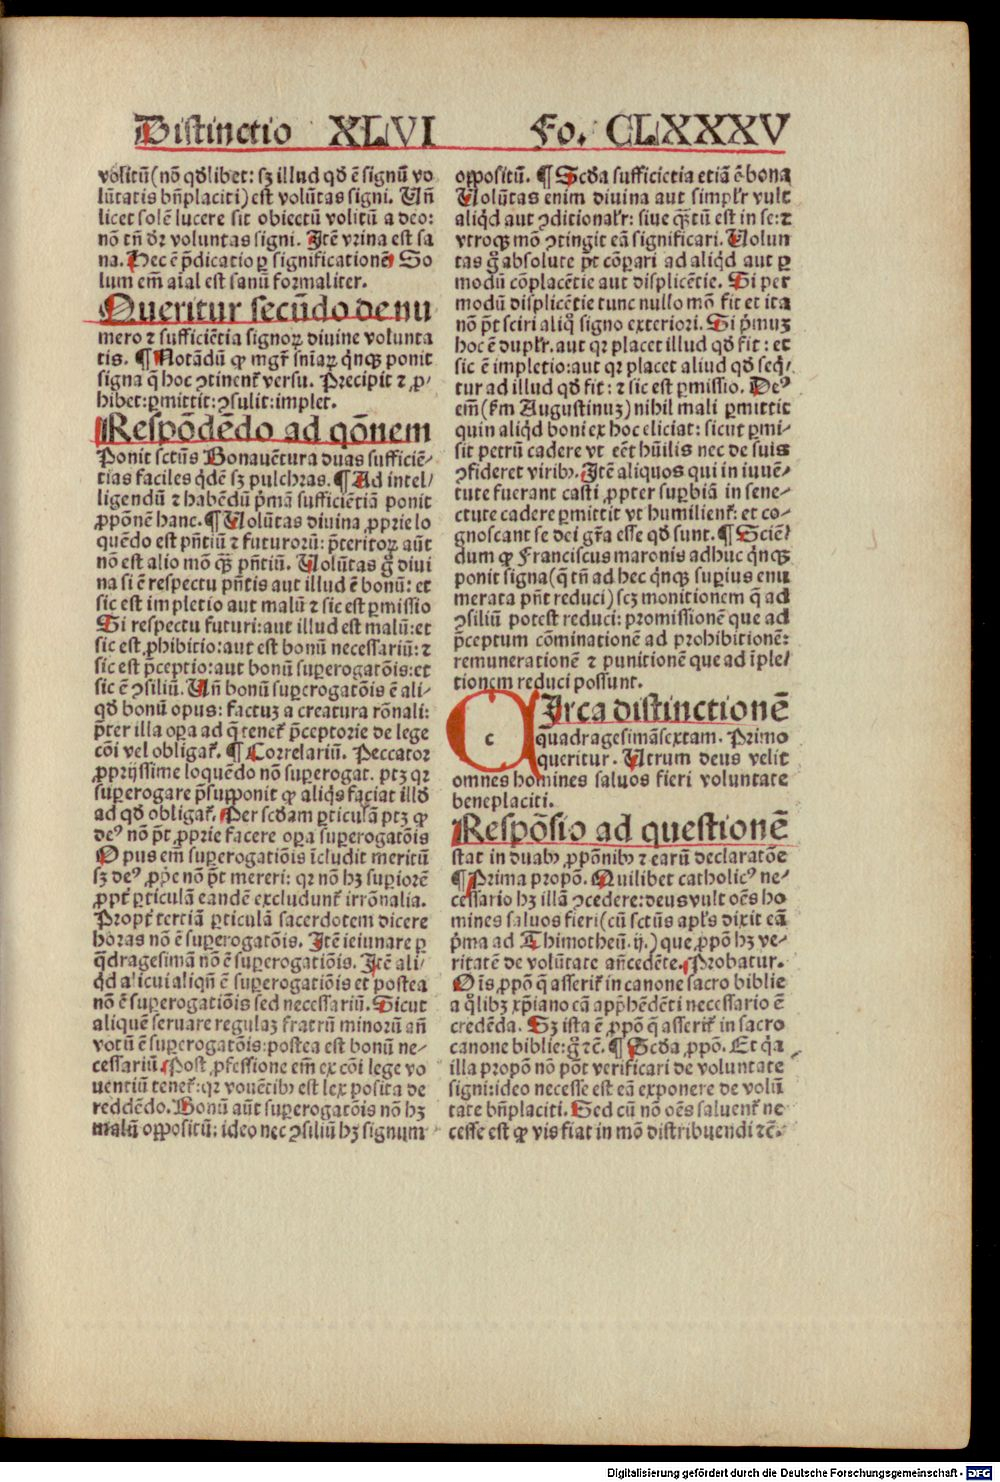 Distinctio XLVI Fo. CLXXXV
volitū(nō qđlibet: sʒ illud qđ ē signū vo
lūtatis bn̄placiti) est volūtas signi. Un̄
licet solē lucere sit obiectū volitū a deo:
nō tn̄ dr̄ voluntas signi. Itē vrina est sa
na. Hec ē p̄dicatio ꝑ significationē So
lum em̄ aīal est sanū formaliter.
Queritur secūdo de nu
mero ⁊ sufficiētia signoꝝ diuine volunta
tis. ¶ Notādū ꝙ mgr̄ sniaꝝ qn̄qꝫ ponit
signa q̄ hoc ꝯtinenť versu. Precipit ⁊ ꝓ/
hibet: ꝑmittit: ꝯsulit: implet.
¶Respōdēdo ad qōnem
Ponit sctūs Bonauētura duas sufficiē/
tias faciles qđē sʒ pulchras. ¶ Ad intel/
ligendū ⁊ habēdū p̄mā sufficiētiā ponit
ꝓpōnē hanc. ¶ Uolūtas diuina ꝓprie lo
quēdo est pn̄tiū ⁊ futurorū: p̄teritoꝝ aūt
nō est alio mō qꝫ̄ pn̄tiū. Uolūtas g̊ diui
na si ē respectu pn̄tis aut illud ē bonū: et
sic est impletio aut malū ⁊ sic est ꝑmissio
Si respectu futuri: aut illud est malū: et
sic est ꝓhibitio: aut est bonū necessariū: ⁊
sic est p̄ceptio: aut bonū suꝑerogatōis: et
sic ē ꝯsiliū. Un̄ bonū suꝑerogatōis ē ali/
qđ bonū opus: factuʒ a creatura rōnali:
p̄ter illa oꝑa ad q̄ tenet᷑ p̄ceptorie de lege
cōi vel obligat᷑. ¶ Correlariū. Peccator
ꝓprijssime loquēdo nō suꝑerogat. ptʒ qr
suꝑerogare p̄supponit ꝙ aliqs faciat illđ
ad qđ obligat᷑. Per scđam ꝑticulā ptʒ ꝙ
deꝰ nō p̄t ꝓprie facere oꝑa suꝑerogatōis
Opus em̄ suꝑerogatiōis īcludit meritū
sʒ deꝰ ꝓp̄e nō p̄t mereri: qr nō hʒ suꝑiorē
ꝓpt᷑ ꝑticulā eandē excludunt᷑ irrōnalia.
Propt᷑ tertiā ꝑticulā sacerdotem dicere
horas nō ē suꝑerogatōis. Itē ieiunare ꝑ
q̄dragesimā nō ē suꝑerogatiōis. Itē ali/
qđ alicui aliqn̄ ē suꝑerogatiōis et postea
nō ē suꝑerogatiōis sed necessariū. Sicut
aliquē seruare regulaʒ fratrū minorū an̄
votū ē suꝑerogatōis: postea est bonū ne/
cessariū. Post ꝓfessione em̄ ex cōi lege vo
uentiū tenet᷑: qr vouētibꝫ est lex posita de
reddēdo. Bonū aūt suꝑerogatōis nō hʒ
malū oppositū: ideo nec ꝯsiliū hʒ signum
oppositū. ¶ Scđa sufficiētia etiā ē bona
Uolūtas enim diuina aut simplr̄ vult
aliqđ aut ꝯditionalr̄: siue qꝫ̄tū est in se: ⁊
vtroqꝫ mō ꝯtingit eā significari. Uolun
tas g̊ absolute p̄t cōꝑari ad aliqđ aut ꝑ
modū cōplacētie aut displicētie. Si per
modū displicētie tunc nullo mō fit et ita
nō p̄t sciri aliq̊ signo exteriori. Si p̄muʒ
hoc ē duplr̄. aut qr placet illud qđ fit: et
sic ē impletio: aut qr placet aliud qđ seq̄/
tur ad illud qđ fit: ⁊ sic est ꝑmissio. Deꝰ
em̄ (ẜm Augustinuʒ) nihil mali ꝑmittit
quin aliqđ boni ex hoc eliciat: sicut ꝑmi/
sit petrū cadere vt eēt hūilis nec de suis
ꝯfideret viribꝫ. Itē aliquos qui in iuuē/
tute fuerant casti ꝓpter suꝑbiā in sene/
ctute cadere ꝑmittit vt humilient᷑: et co/
gnoscant se dei gr̄a esse qđ sunt. ¶ Sciē/
dum ꝙ Franciscus maronis adhuc qn̄qꝫ
ponit signa (q̄ tn̄ ad hec qn̄qꝫ suꝑius enu
merata pn̄t reduci) scʒ monitionem q̄ ad
ꝯsiliū potest reduci: promissionē que ad
p̄ceptum cōminationē ad prohibitionē:
remunerationē ⁊ punitionē que ad īple/
tionem reduci possunt.
C c Irca distinctionē
quadragesimāsextam. Primo
queritur. Utrum deus velit
omnes homines saluos fieri voluntate
beneplaciti.
¶Respōsio ad questionē
stat in duabꝫ ꝓpōnibꝫ ⁊ earū declaratōe
¶ Prima propō. Quilibet catholicꝰ ne/
cessario hʒ illā ꝯcedere: deus vult oēs ho
mines saluos fieri (cū sctūs apl̄s dixit eā
p̄ma ad Thimotheū. ij.) que ꝓpō hʒ ve/
ritatē de volūtate an̄cedēte. Probatur.
Oīs ꝓpō q̄ asserit᷑ in canone sacro biblie
a q̊libʒ xp̄iano eā app̄hēdēti necessario ē
credēda. Sʒ ista ē ꝓpō q̄ asserit᷑ in sacro
canone biblie: g̊ ⁊c̄. ¶ Scđa ꝓpō. Et q̄a
illa propō nō pōt verificari de voluntate
signi: ideo necesse est eā exponere de volū
tate bn̄placiti. Sed cū nō oēs saluent᷑ ne
cesse est ꝙ vis fiat in mō distribuendi ⁊c̄.
Digitalisierung gefördert durch die Deutsche Forschungsgemeinschaft - DFG